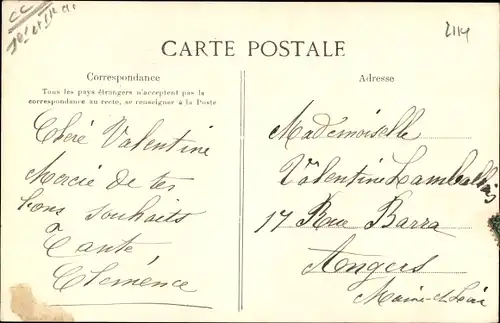 2114
CARTE POSTALE
Correspondance
Tous les pays étrangers n'acceptent pas la
correspondance au recto, se renseigner à la Poste
Adresse
Chère Valentine
Mercie de tes
bons souhaits
Tante
Clémence
Mademoiselle
Valentine
17 Rue Barra
Angers
Maine-et-Loire